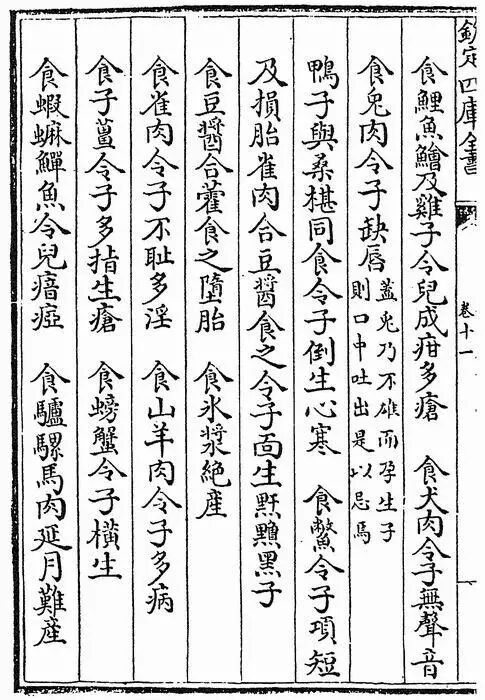 欽定四庫全書
卷十一
食鯉魚鱠及雞子令兒成疳多瘡 食犬肉令子無聲音
食兔肉令子缺唇
蓋兔乃不雄而孕生子
則口中吐出是以忌焉
鴨子與桑椹同食令子倒生心寒 食鱉令子項短
及損胎雀肉合豆醬食之令子面生黑子
食豆醬合藿食之墮胎 食氷漿絶産
食雀肉令子不耻多淫 食山羊肉令子多病
食子薑令子多指生瘡 食螃蟹令子橫生
食蝦蟆鱓魚令兒瘖瘂 食驢騾馬肉延月難産